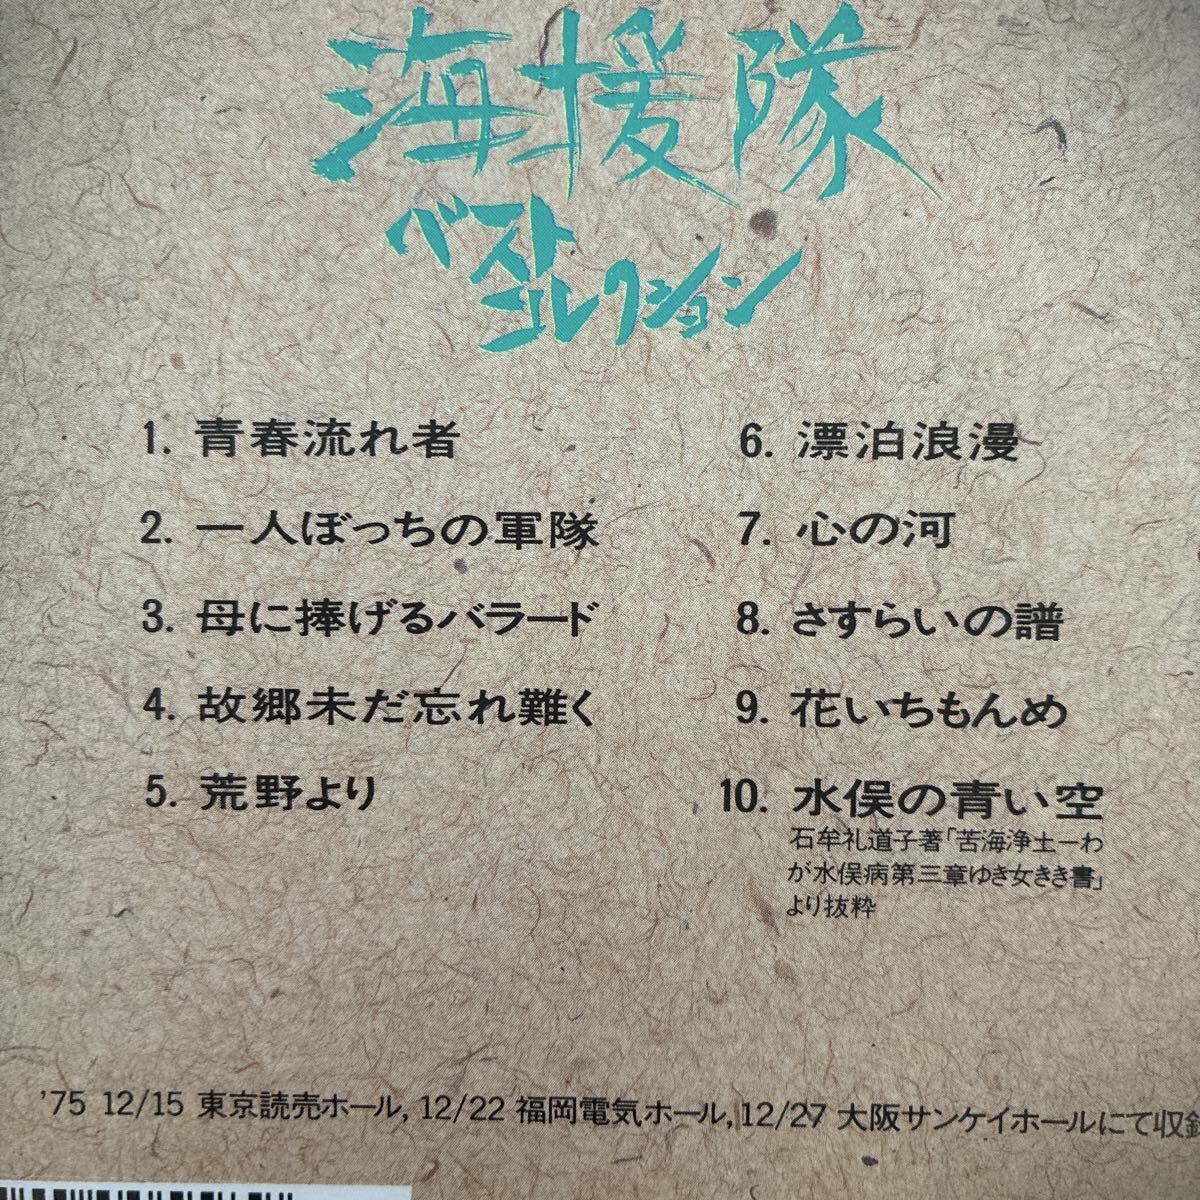 海援隊
ベスト
コレクション
1. 青春流れ者
2. 一人ぼっちの軍隊
3. 母に捧げるバラード
4. 故郷未だ忘れ難く
5. 荒野より
6. 漂泊浪漫
7. 心の河
8. さすらいの譜
9. 花いちもんめ
10. 水俣の青い空
石牟礼道子著「苦海浄土ーわ
が水俣病第三章ゆき女きき書」
より抜粋
'75 12/15 東京読売ホール, 12/22 福岡電気ホール, 12/27 大阪サンケイホールにて収録